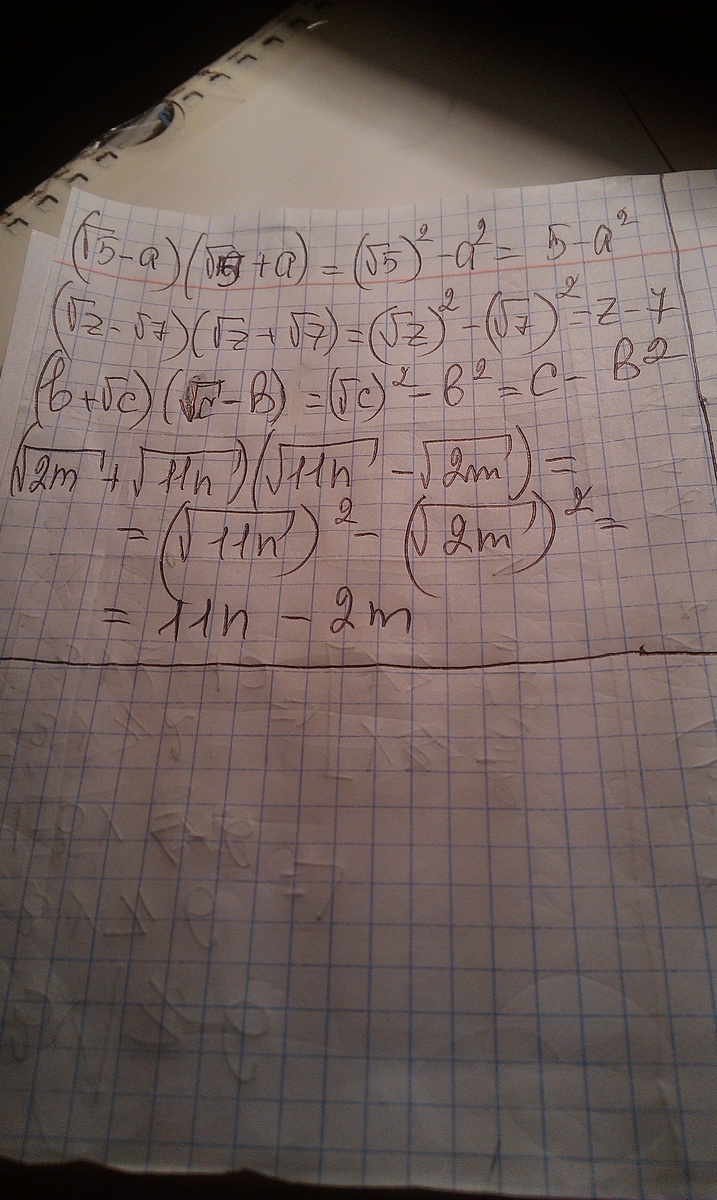 (√5-a)(√5+a)=(√5)²-a²= 5-a²
(√z-√7)(√z+√7)=(√z)²-(√7)²=z-7
(b+√c)(√c-B)=(√c)²-B²=C-B2
(√2m+√11n)(√11n-√2m)=
=(√11n)²-(√2m)²=
=11n-2m